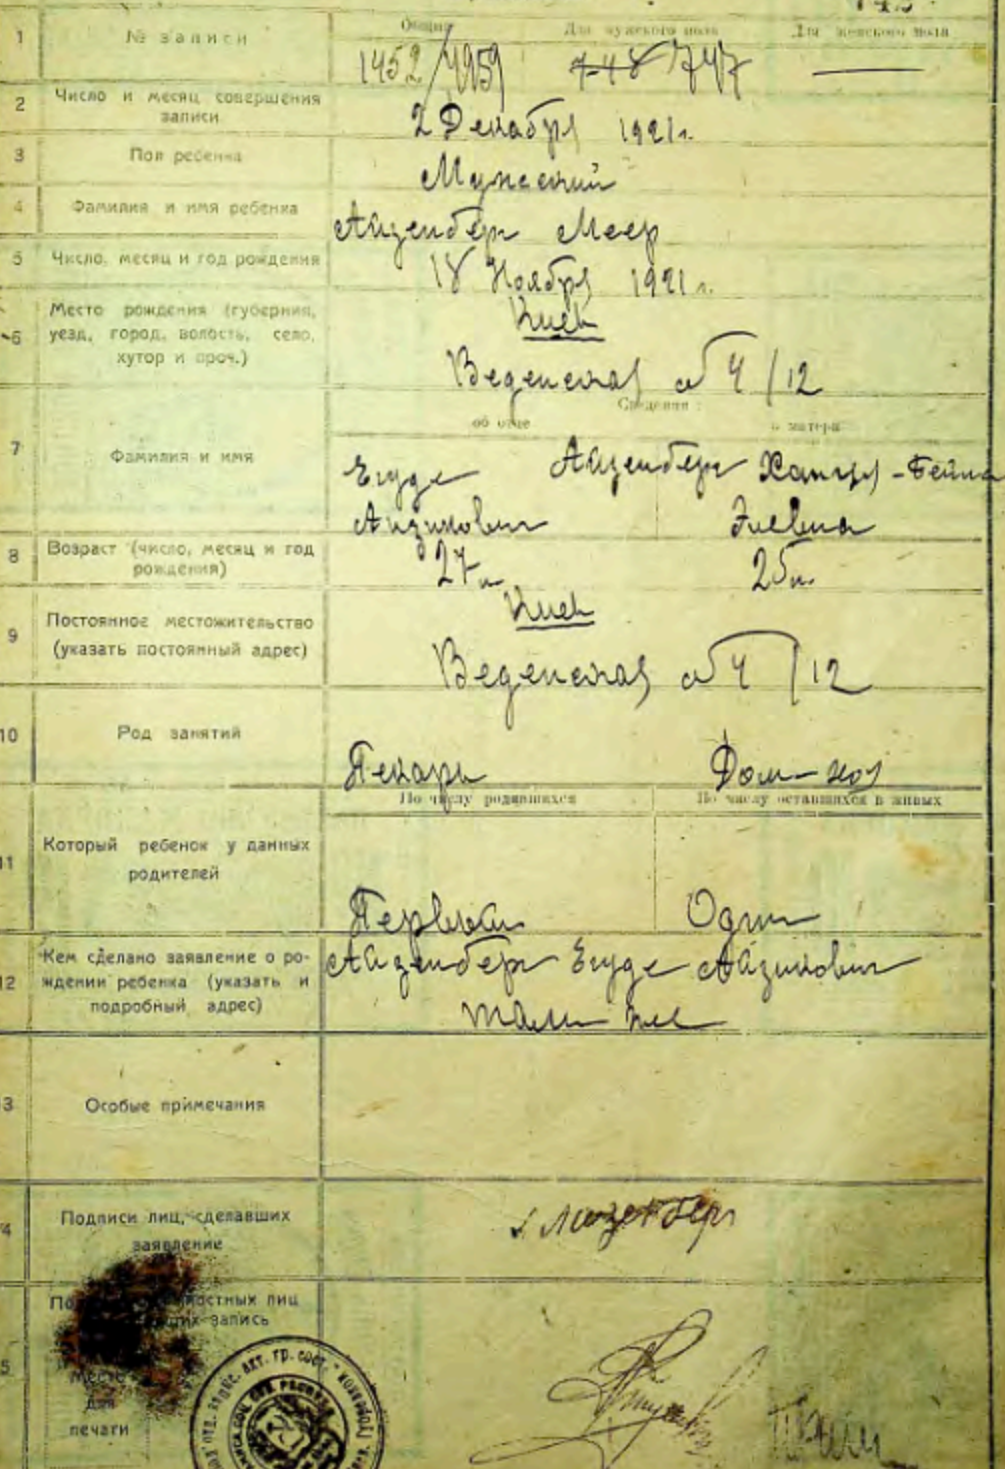 Общий Для мужского пола Для женского пола
1 № записи
1452/4959 748 747 —
2 Число и месяц совершения записи
2 Декабря 1921 г.
3 Пол ребенка
Мужеский
4 Фамилия и имя ребенка
Айзенберг Меер
5 Число, месяц и год рождения
18 Ноября 1921 г.
6 Место рождения (губерния,
уезд, город, волость, село,
хутор и проч.)
Киев
Веденская № 4/12
Сведения:
об отце о матери
7 Фамилия и имя
Егуде Айзенберг Хангя-Бейла
Айзикович Элевна
8 Возраст (число, месяц и год
рождения)
27 л. 25 л.
9 Постоянное местожительство
(указать постоянный адрес)
Киев
Веденская № 4/12
10 Род занятий
Пекарь Дом-хоз
По числу родившихся По числу оставшихся в живых
11 Который ребенок у данных
родителей
Первый Один
12 Кем сделано заявление о ро-
ждении ребенка (указать и
подробный адрес)
Айзенберг Егуде Айзикович
там же
3 Особые примечания
4 Подписи лиц, сделавших
заявление
Айзенберг
5 лиц
запись
Место
для
печати